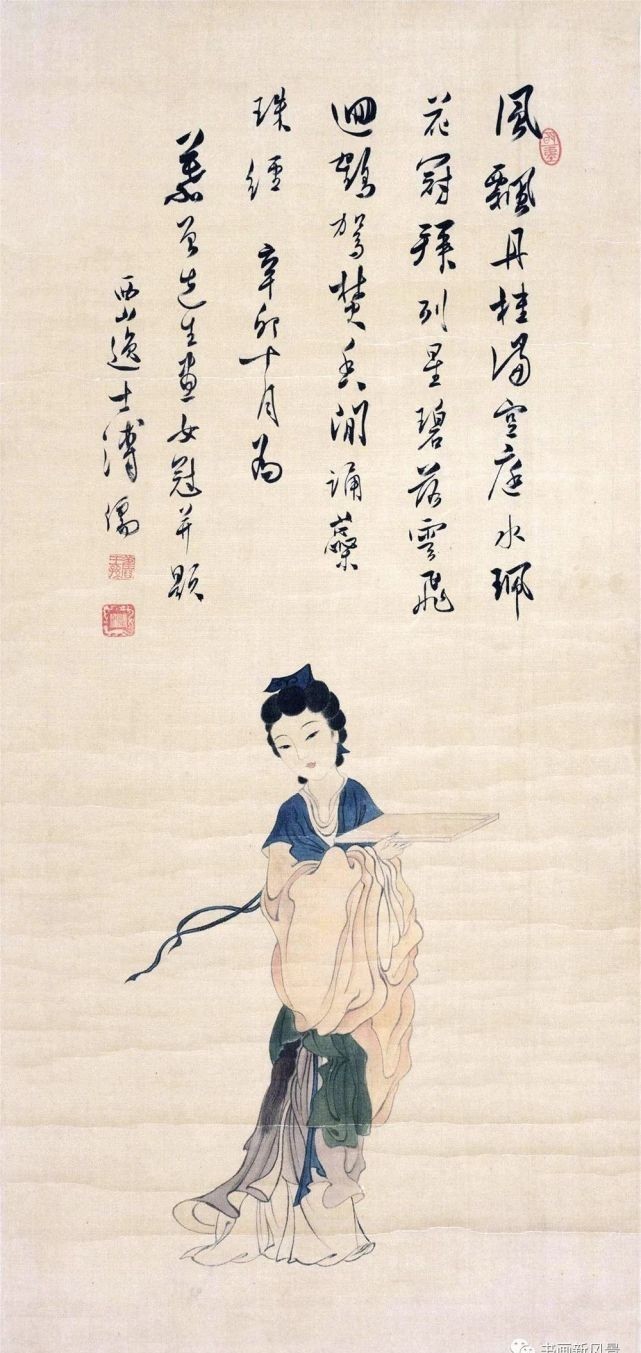 風飄丹桂滿空庭水珮
花冠拜列星碧落雲飛
迴鶴駕焚香閒誦蘂
珠經 辛卯十月為
先生畫女冠并題
西山逸士溥儒
书画新风景